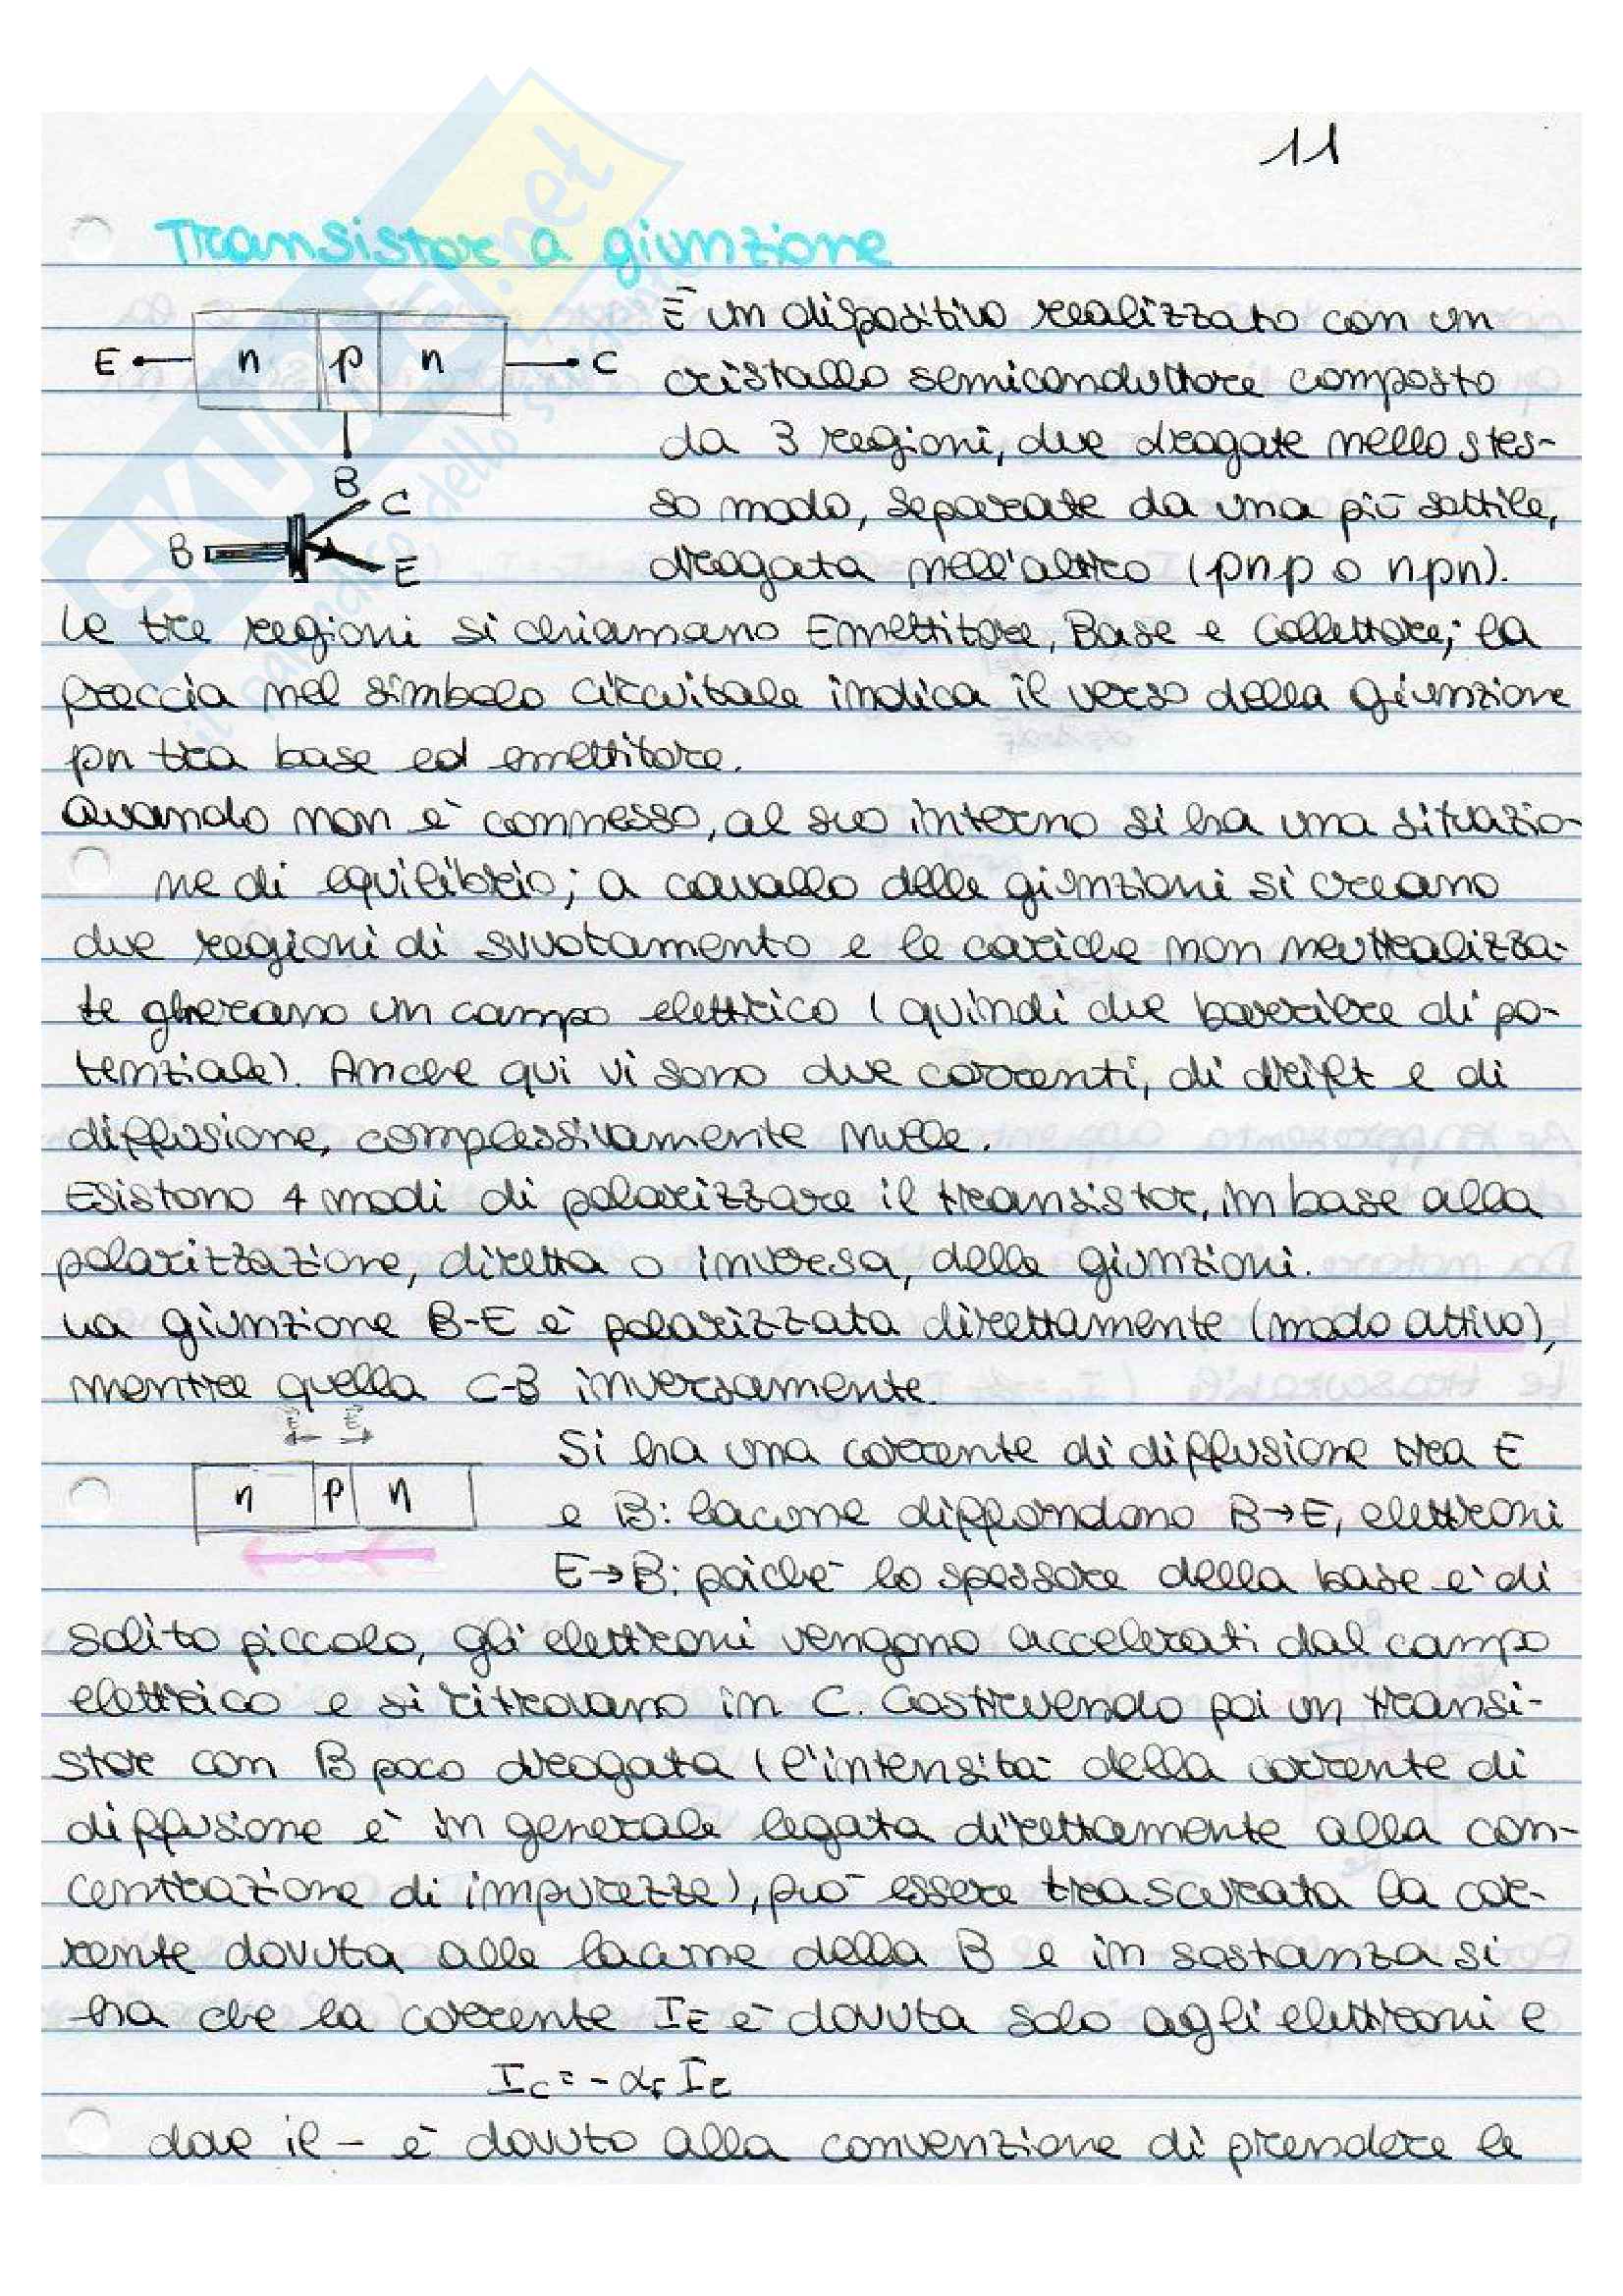 11
Transistor a giunzione
È un dispositivo realizzato con un
cristallo semiconduttore composto
da 3 regioni, due drogate nello stes-
so modo, separate da una più sottile,
drogata nell'altro (pnp o npn).
E n p n C
B
C
B
E
Le tre regioni si chiamano Emettitore, Base e Collettore; la
freccia nel simbolo circuitale indica il verso della giunzione
pn tra base ed emettitore.
Quando non è connesso, al suo interno si ha una situazio-
ne di equilibrio; a cavallo delle giunzioni si creano
due regioni di svuotamento e le cariche non neutralizza-
te generano un campo elettrico (quindi due barriere di po-
tenziale). Anche qui vi sono due correnti, di drift e di
diffusione, complessivamente nulle.
Esistono 4 modi di polarizzare il transistor, in base alla
polarizzazione, diretta o inversa, delle giunzioni.
La giunzione B-E è polarizzata direttamente (modo attivo),
mentre quella C-B inversamente.
E E
n p n
Si ha una corrente di diffusione tra E
e B: lacune diffondono B→E, elettroni
E→B; poiché lo spessore della base è di
solito piccolo, gli elettroni vengono accelerati dal campo
elettrico e si ritrovano in C. Costruendo poi un transi-
stor con B poco drogata (l'intensità della corrente di
diffusione è in generale legata direttamente alla con-
centrazione di impurezze), può essere trascurata la cor-
rente dovuta alle lacune della B e in sostanza si
ha che la corrente IE è dovuta solo agli elettroni e
IC = - αF IE
dove il - è dovuto alla convenzione di prendere le
SKUOLA.net
il paradiso dello studente